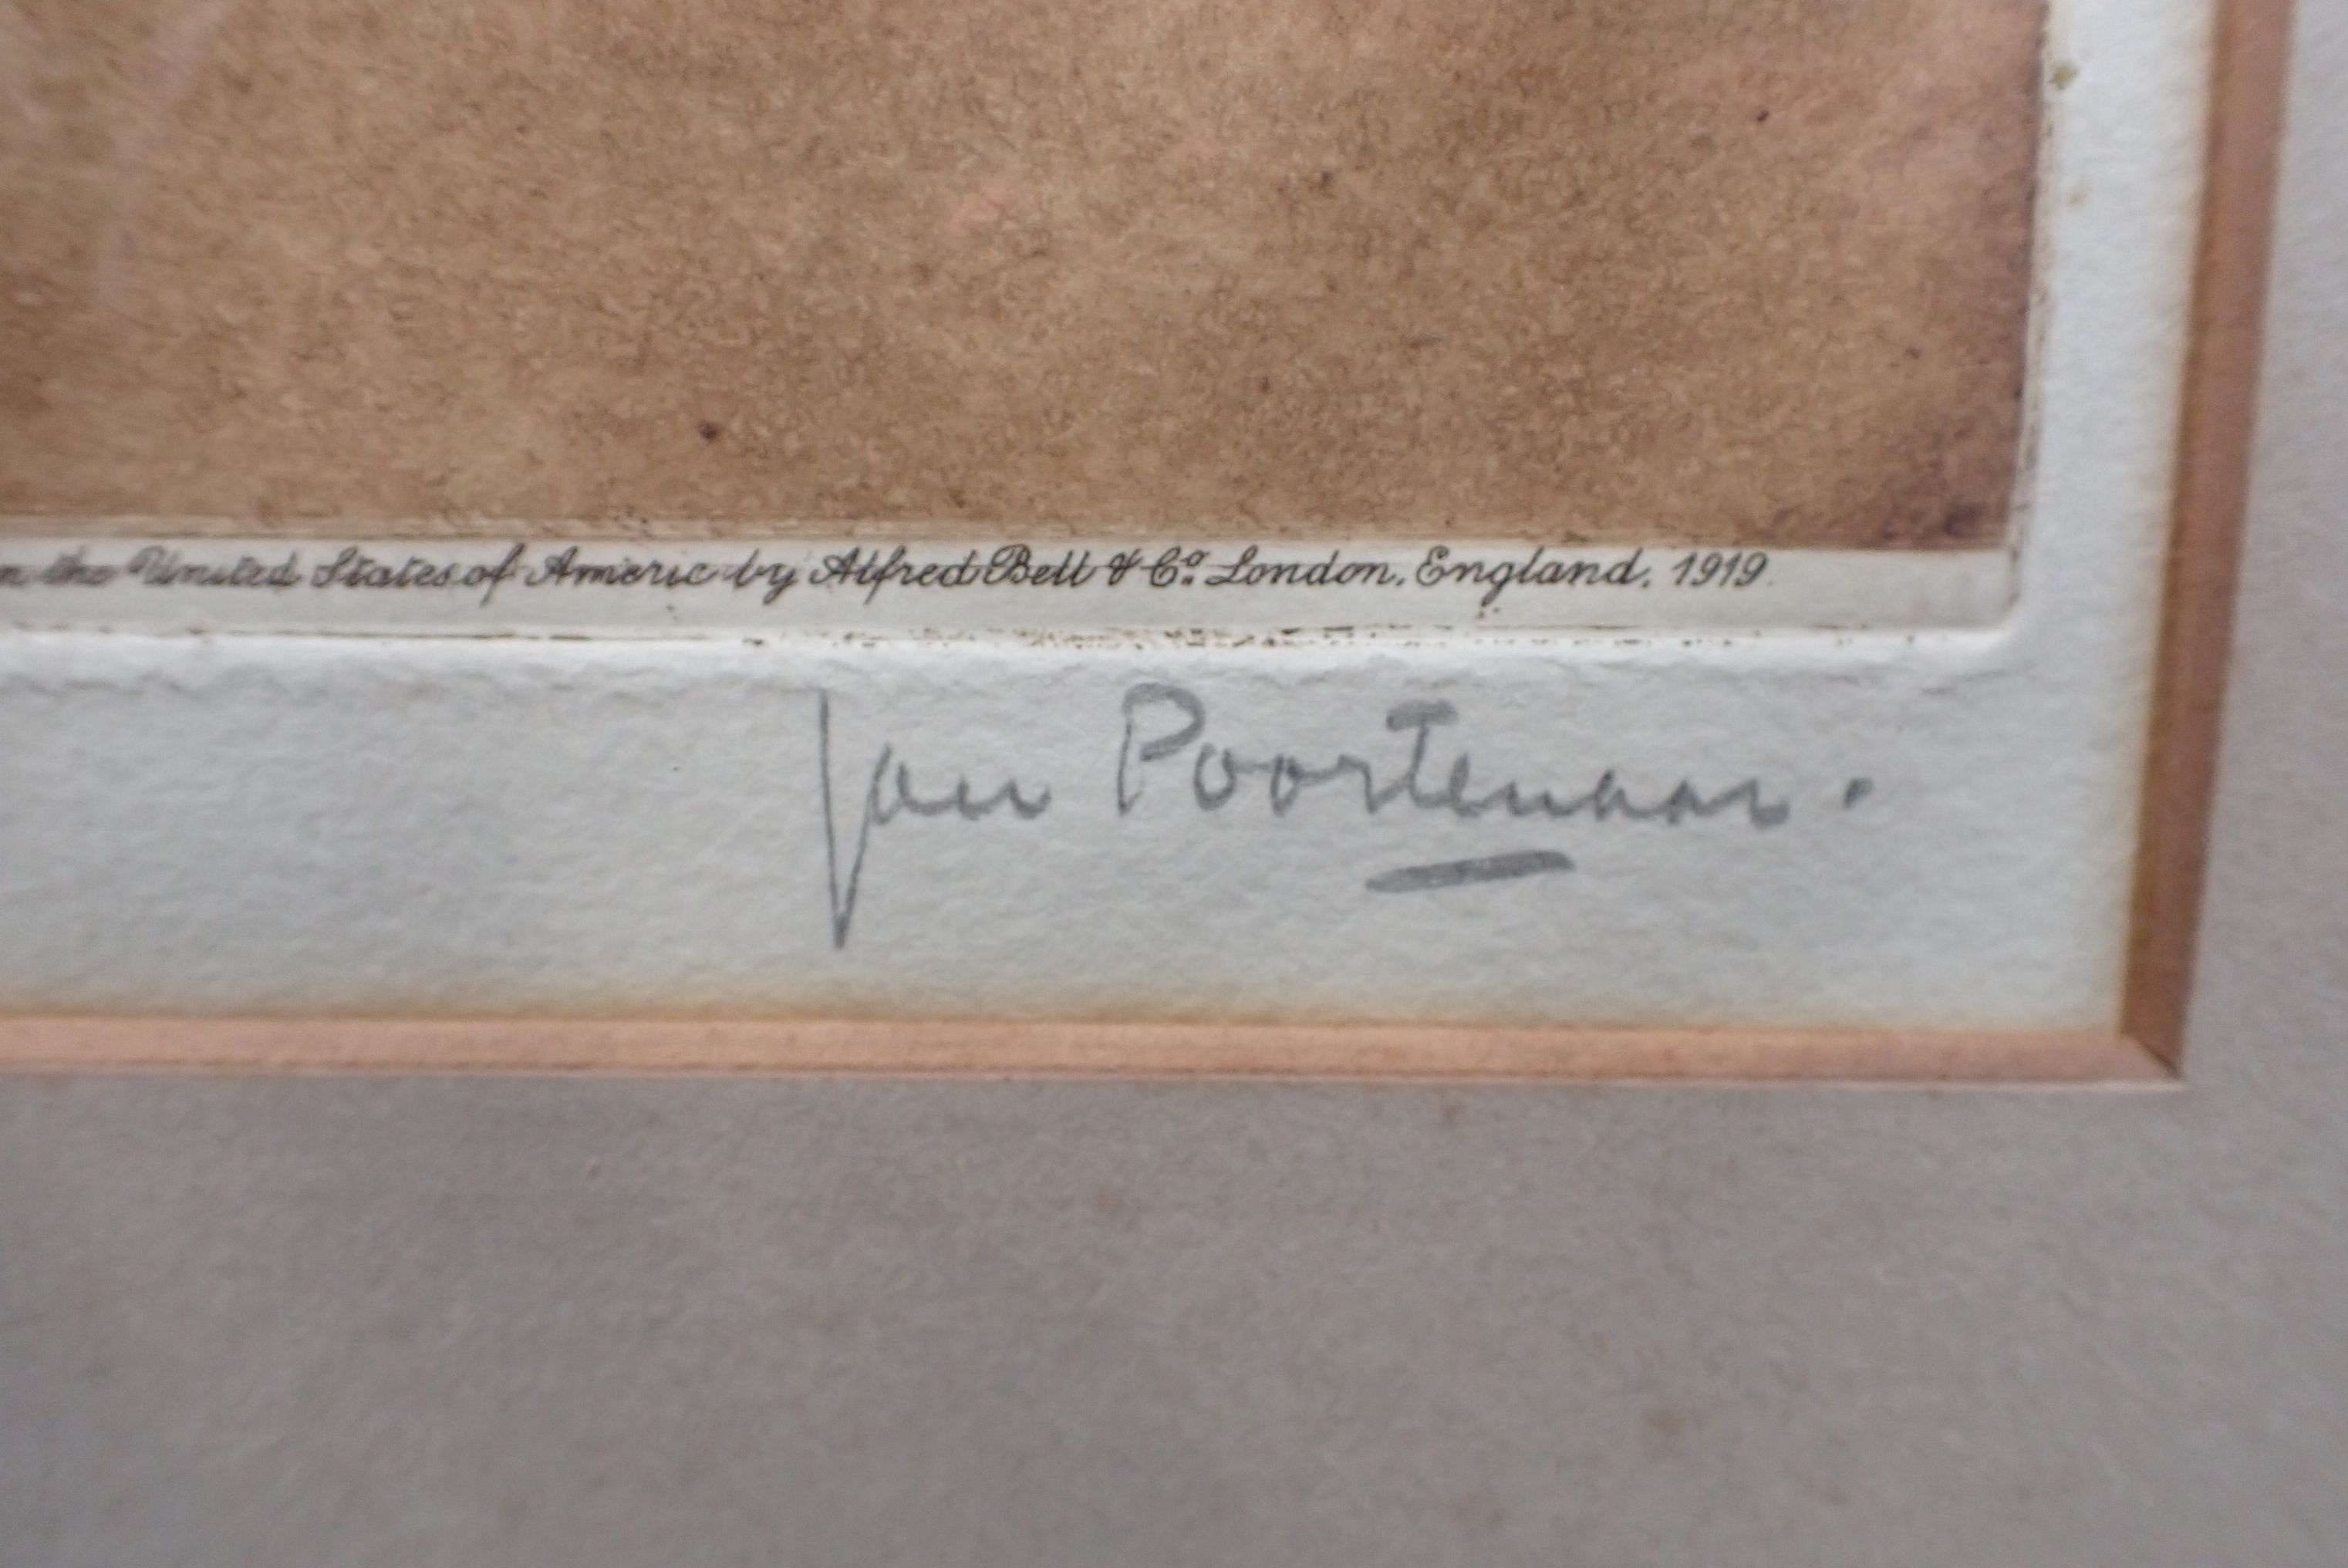 the United States of Americ by Alfred Bell & Co. London, England, 1919.
Jan Poortenaar.